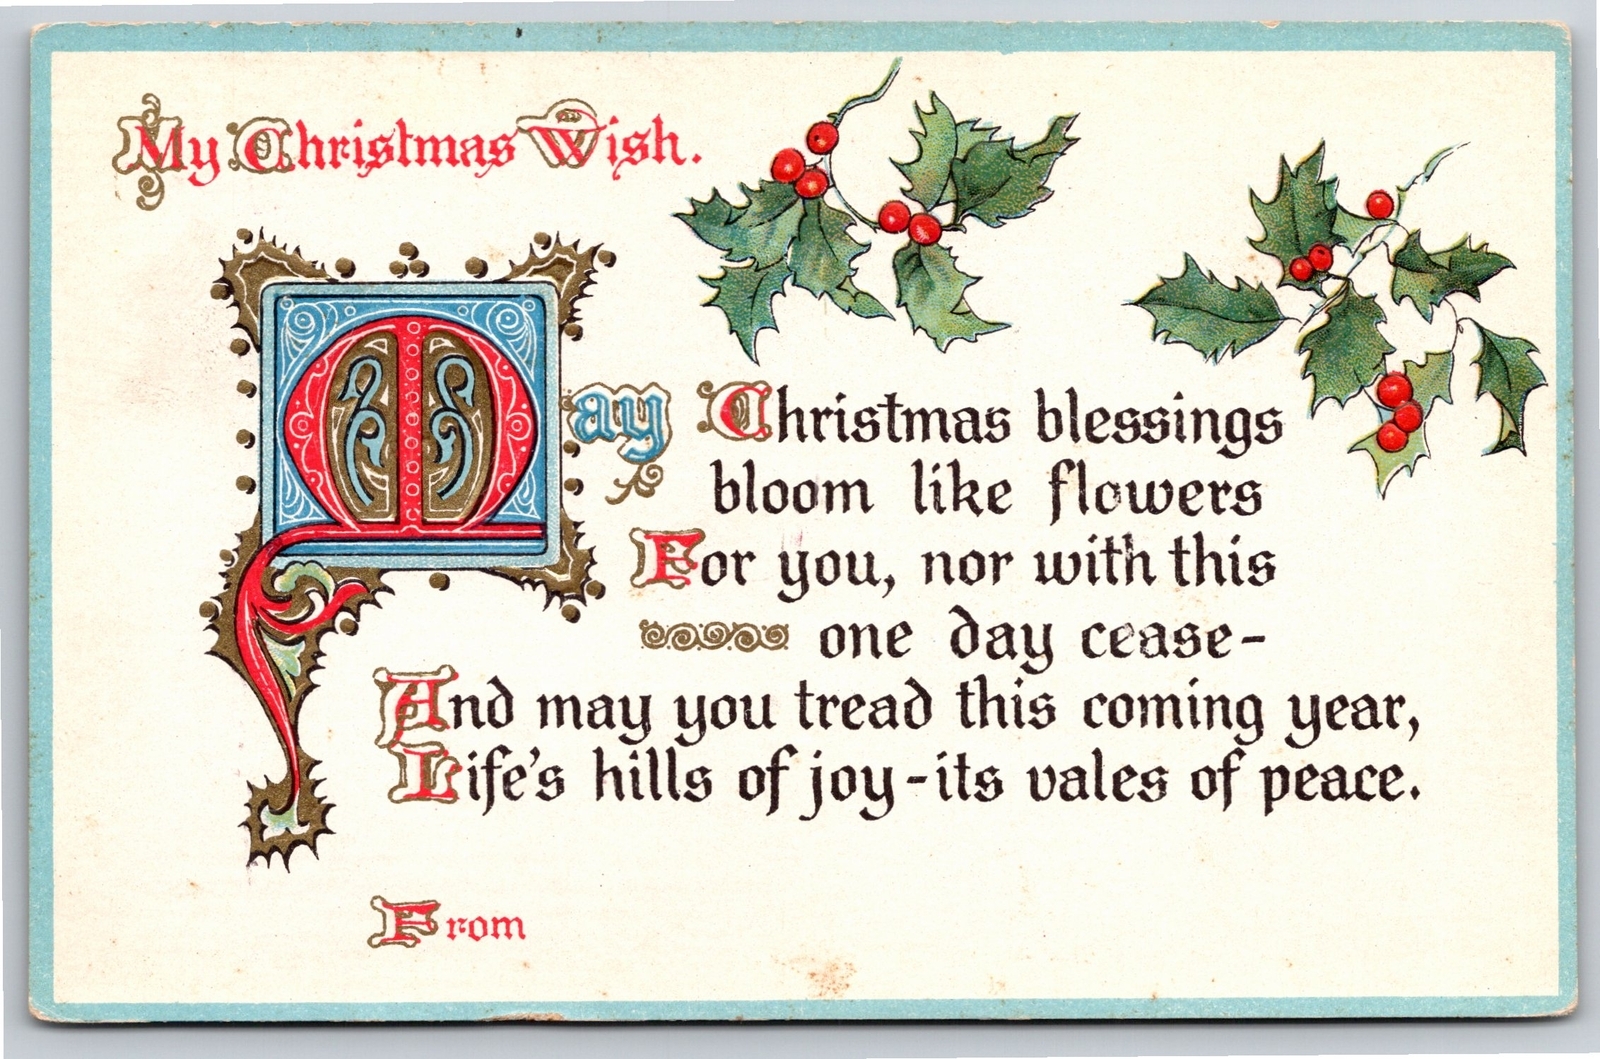 My Christmas Wish.
May Christmas blessings
bloom like flowers
For you, nor with this
one day cease-
And may you tread this coming year,
Life's hills of joy-its vales of peace.
From